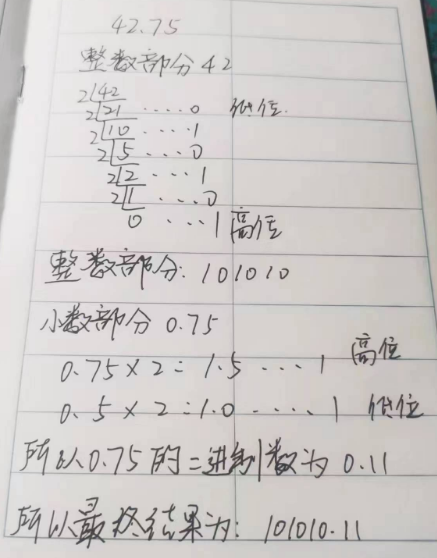 42.75
整数部分42
2|42
2|21 ....0 低位.
2|10 ....1
2|5 ...0
2|2 ...1
2|1 ...0
0 ...1 高位
整数部分: 101010
小数部分 0.75
0.75×2=1.5 ....1 高位
0.5×2=1.0 .....1 低位
所以0.75的二进制数为 0.11
所以最终结果为: 101010.11